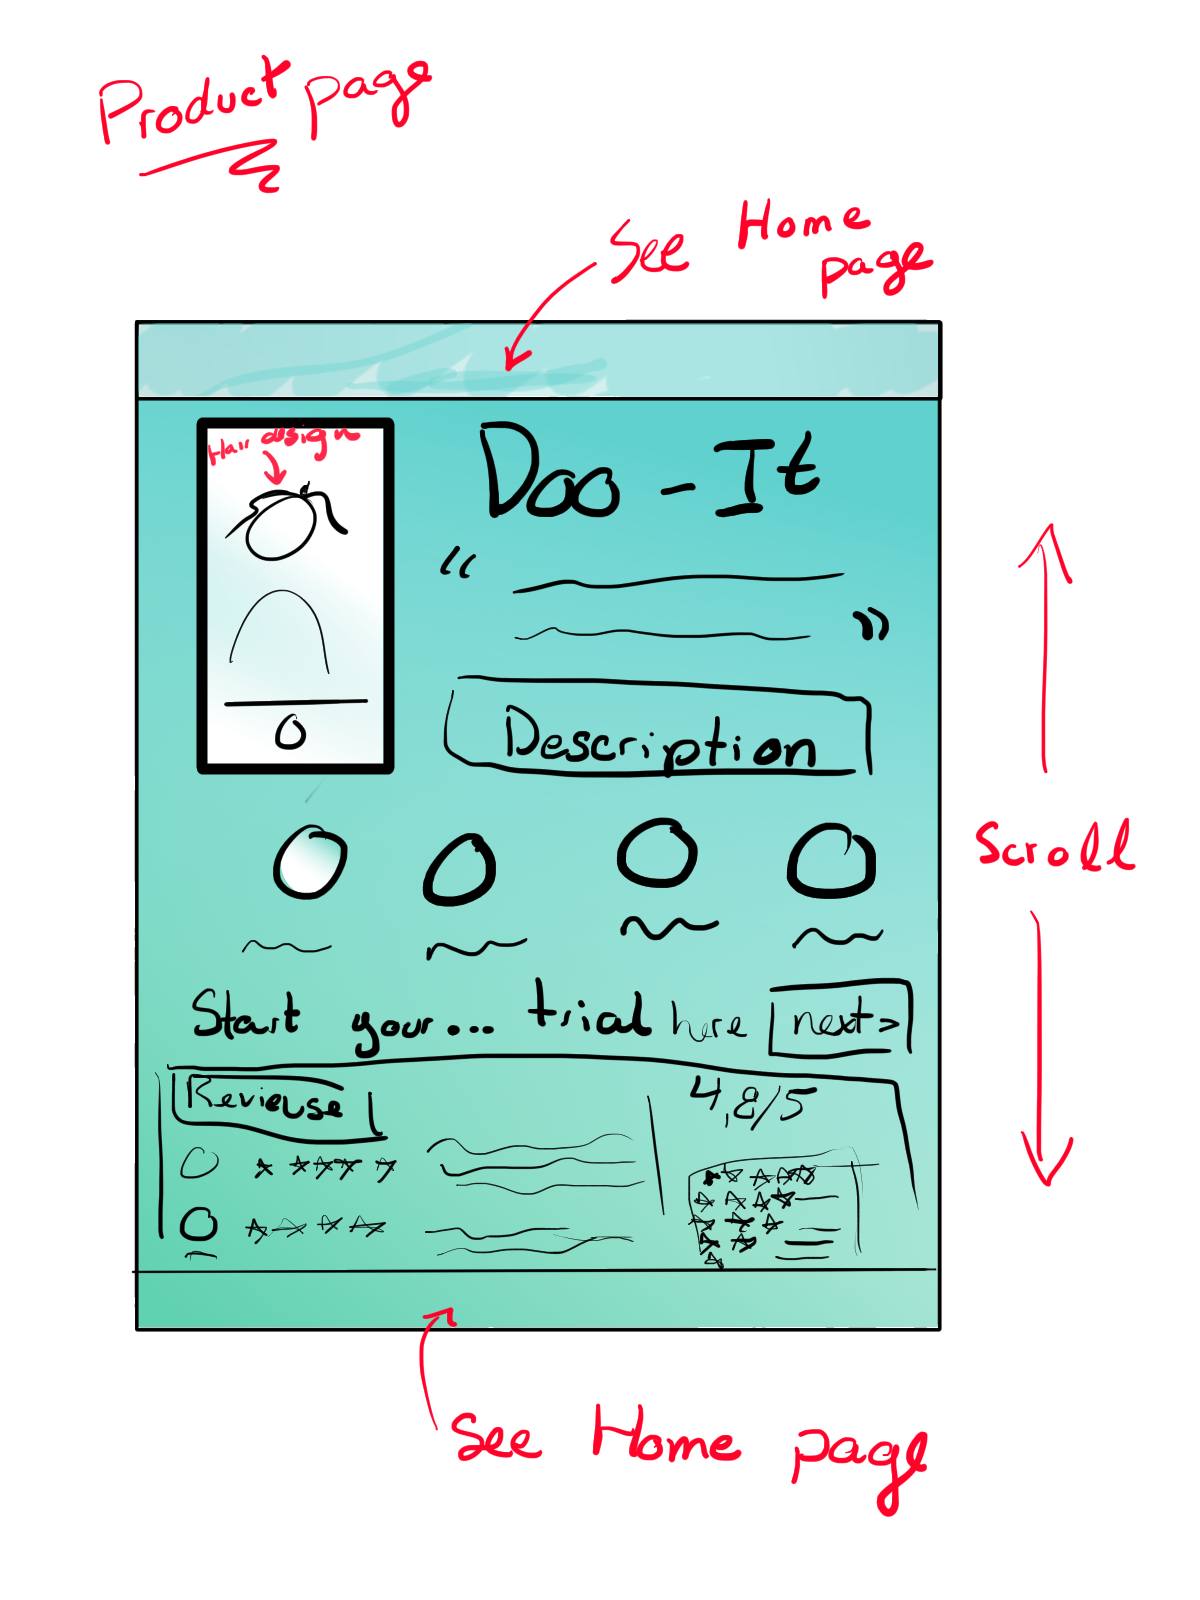 Product page
See Home
page
Hair design
Doo - It
“
”
Description
Start your... trial here next >
Revieuse
4,8/5
Scroll
See Home page